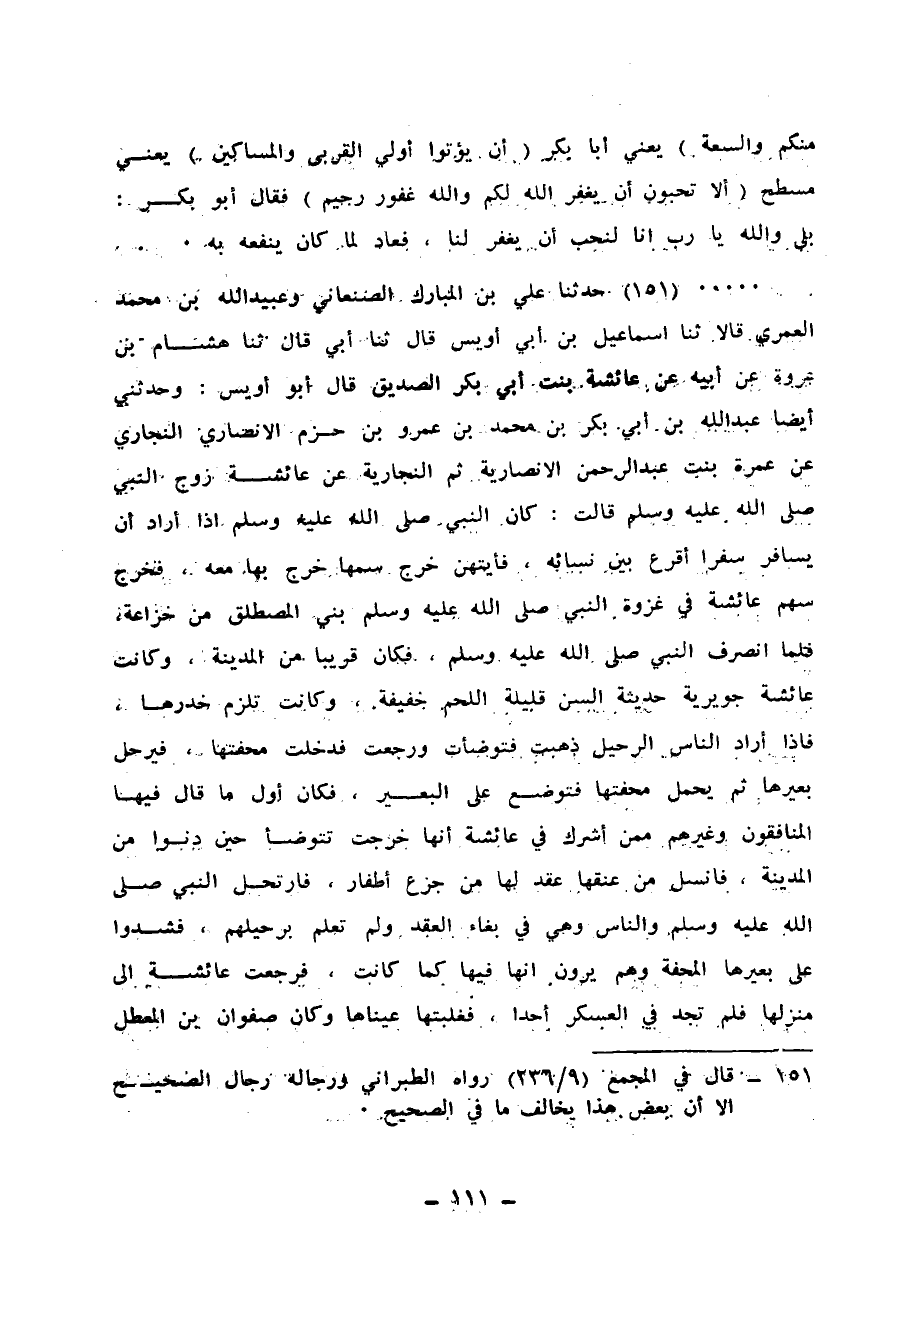 منكم والسعة ) يعني أبا بكر ( أن يؤتوا أولي القربى والمساكين ) يعنــي
مسطح ( ألا تحبون أن يغفر الله لكم والله غفور رحيم ) فقال أبو بكـــر :
بلى والله يا رب انا لنحب أن يغفر لنا ، فعاد لما كان ينفعه به ٠
٠٠٠٠٠ (١٥١) حدثنا علي بن المبارك الصنعاني وعبيدالله بن محمد
العمري قالا ثنا اسماعيل بن أبي أويس قال ثنا أبي قال ثنا هشـــام بن
عروة عن أبيه عن عائشة بنت أبي بكر الصديق قال أبو أويس : وحدثني
أيضا عبدالله بن أبي بكر بن محمد بن عمرو بن حـزم الانصاري النجاري
عن عمرة بنت عبدالرحمن الانصارية ثم النجارية عن عائشـــة زوج النبي
صلى الله عليه وسلم قالت : كان النبي صلى الله عليه وسلم اذا أراد أن
يسافر سفرا أقرع بين نسائه ، فأيتهن خرج سمها خرج بها معه ، فخرج
سهم عائشة في غزوة النبي صلى الله عليه وسلم بني المصطلق من خزاعة،
فلما انصرف النبي صلى الله عليه وسلم ، فكان قريبا من المدينة ، وكانت
عائشة جويرية حديثة السن قليلة اللحم خفيفة ، وكانت تلزم خدرهـا ،
فاذا أراد الناس الرحيل ذهبت فتوضأت ورجعت فدخلت محفتها ، فيرحل
بعيرها ثم يحمل محفتها فتوضـع على البعـــير ، فكان أول ما قال فيهـا
المنافقون وغيرهم ممن أشرك في عائشة أنها خرجت تتوضـأ حين دنـوا من
المدينة ، فانسل من عنقها عقد لها من جزع أظفار ، فارتحـل النبي صـلى
الله عليه وسلم والناس وهي في بغاء العقد ولم تعلم برحيلهم ، فشـدوا
على بعيرها المحفة وهم يرون انها فيها كما كانت ، فرجعت عائشـــة الى
منزلها فلم تجد في العسكر أحدا ، فغلبتها عيناها وكان صفوان بن المعطل
١٥١ ـ قال في المجمع (٢٣٦/٩) رواه الطبراني ورجاله رجال الصحيــح
الا أن بعض هذا يخالف ما في الصحيح ٠
ـ ١١١ ـ